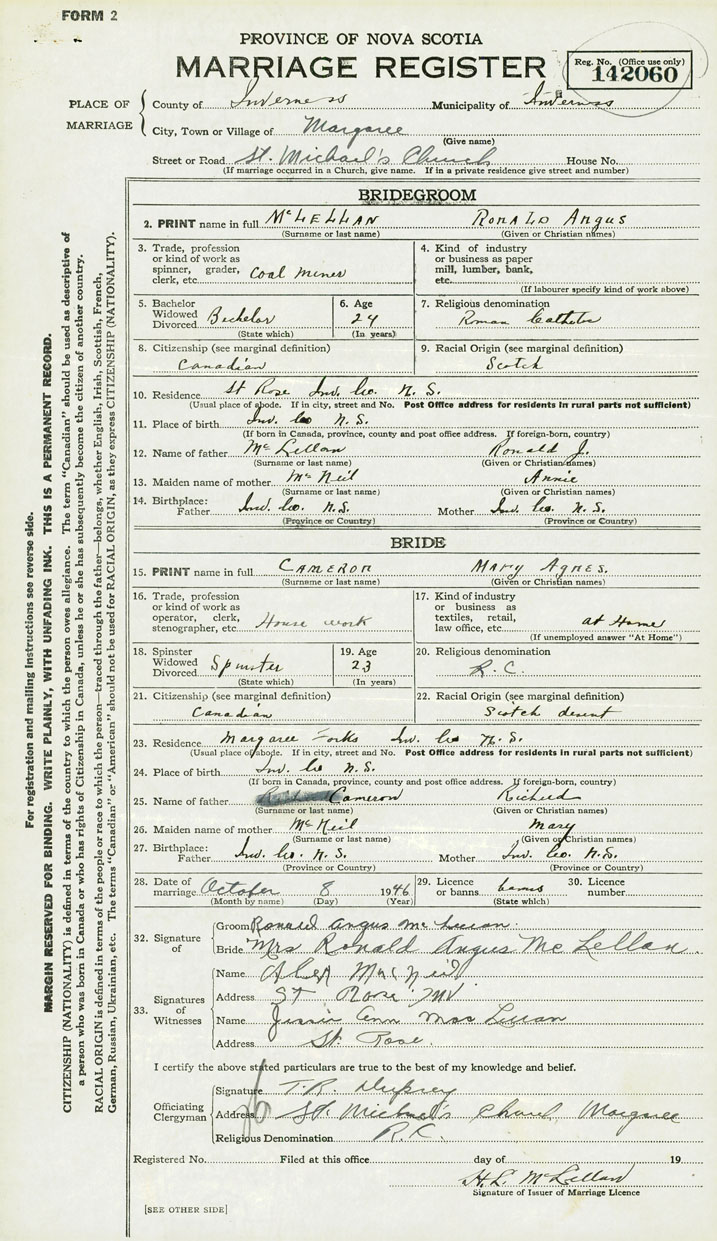 FORM 2
PROVINCE OF NOVA SCOTIA
MARRIAGE REGISTER
Reg. No. (Office use only)
142060
PLACE OF MARRIAGE
County of Inverness Municipality of Inverness
City, Town or Village of Margaree
(Give name)
Street or Road St. Michael's Church House No.
(If marriage occurred in a Church, give name. If in a private residence give street and number)
BRIDEGROOM
2. PRINT name in full McLELLAN RONALD ANGUS
(Surname or last name) (Given or Christian names)
3. Trade, profession or kind of work as spinner, grader, clerk, etc. Coal miner
4. Kind of industry or business as paper mill, lumber, bank, etc.
(If labourer specify kind of work above)
5. Bachelor Widowed Divorced Bachelor
(State which)
6. Age 24
(In years)
7. Religious denomination
Roman Catholic
8. Citizenship (see marginal definition)
Canadian
9. Racial Origin (see marginal definition)
Scotch
10. Residence St Rose Inv. Co. N. S.
(Usual place of abode. If in city, street and No. Post Office address for residents in rural parts not sufficient)
11. Place of birth Inv. Co N. S.
(If born in Canada, province, county and post office address. If foreign-born, country)
12. Name of father McLellan Ronald J.
(Surname or last name) (Given or Christian names)
13. Maiden name of mother McNeil Annie
(Surname or last name) (Given or Christian names)
14. Birthplace: Father Ind. Co. N.S. Mother Ind. Co. N.S.
(Province or Country) (Province or Country)
BRIDE
15. PRINT name in full CAMERON MARY AGNES.
(Surname or last name) (Given or Christian names)
16. Trade, profession or kind of work as operator, clerk, stenographer, etc. House work
17. Kind of industry or business as textiles, retail, law office, etc. at Home
(If unemployed answer "At Home")
18. Spinster Widowed Divorced Spinster
(State which)
19. Age 23
(In years)
20. Religious denomination
R. C.
21. Citizenship (see marginal definition)
Canadian
22. Racial Origin (see marginal definition)
Scotch desent
23. Residence Margaree Forks Inv. Co N. S.
(Usual place of abode. If in city, street and No. Post Office address for residents in rural parts not sufficient)
24. Place of birth Inv. Co N. S.
(If born in Canada, province, county and post office address. If foreign-born, country)
25. Name of father Cameron Richard
(Surname or last name) (Given or Christian names)
26. Maiden name of mother McNeil Mary
(Surname or last name) (Given or Christian names)
27. Birthplace: Father Inv. Co. N. S. Mother Inv. Co. N.S.
(Province or Country) (Province or Country)
28. Date of marriage October 8 1946
(Month by name) (Day) (Year)
29. Licence or banns banns
(State which)
30. Licence number
32. Signature of
Groom Ronald Angus McLellan
Bride Mrs Ronald Angus McLellan.
33. Signatures of Witnesses
Name Alex MacNeil
Address ST Rose Inv
Name Jessie Ann MacLellan
Address St. Rose.
I certify the above stated particulars are true to the best of my knowledge and belief.
Officiating Clergyman
Signature T. R.
Address St. Michael's Church Margaree
Religious Denomination R. C.
Registered No. Filed at this office day of 19
H. L. McLellan
Signature of Issuer of Marriage Licence
[SEE OTHER SIDE]
For registration and mailing instructions see reverse side.
MARGIN RESERVED FOR BINDING. WRITE PLAINLY, WITH UNFADING INK. THIS IS A PERMANENT RECORD.
CITIZENSHIP (NATIONALITY) is defined in terms of the country to which the person owes allegiance. The term "Canadian" should be used as descriptive of
a person who was born in Canada or who has rights of Citizenship in Canada, unless he or she has subsequently become the citizen of another country.
RACIAL ORIGIN is defined in terms of the people or race to which the person—traced through the father—belongs, whether English, Irish, Scottish, French,
German, Russian, Ukrainian, etc. The terms "Canadian" or "American" should not be used for RACIAL ORIGIN, as they express CITIZENSHIP (NATIONALITY).